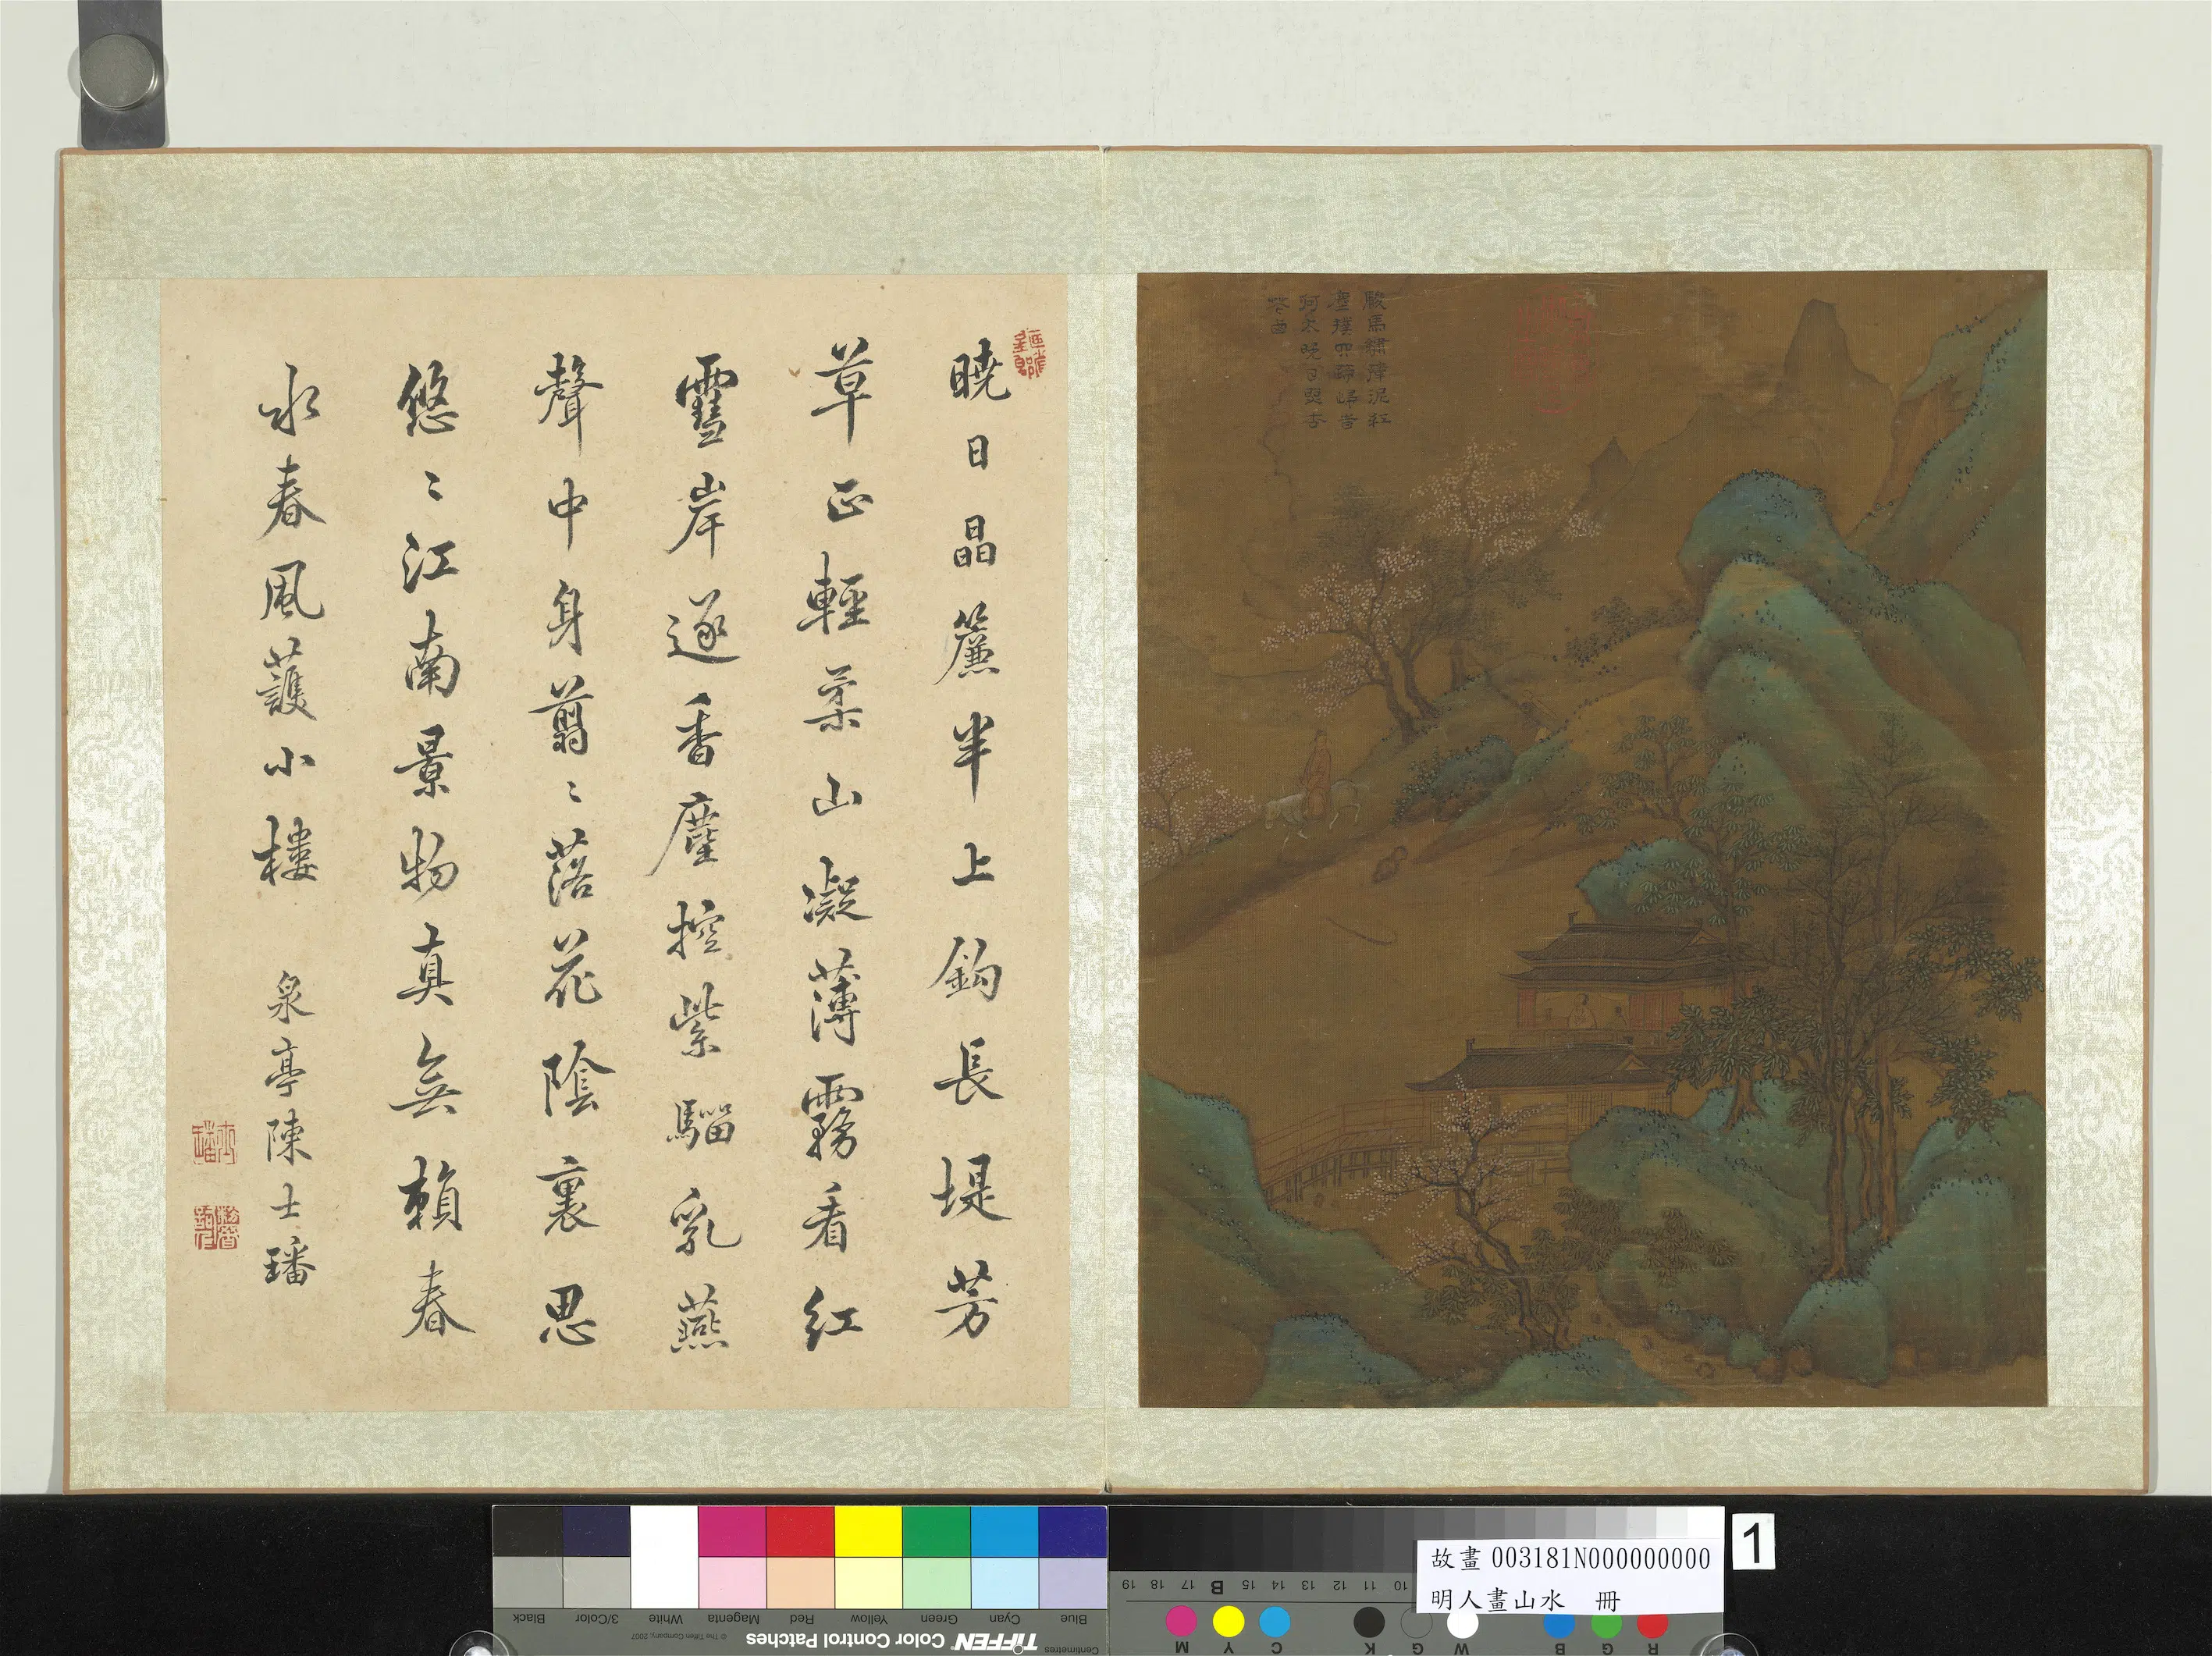 曉日晶簾半上鈎長堤芳
草正輕柔山凝薄霧看紅
雪岸逐香塵控紫騮乳燕
聲中身翦〻落花陰裏思
悠〻江南景物真無賴春
水春風護小樓
泉亭陳士璠
駿馬驕
晚日
杏
故畫 003181N000000000
明人畫山水 冊
1
Black
3/Color
White
Magenta
Red
Yellow
Green
Cyan
Blue
© The Tiffen Company, 2007
TIFFEN Color Control Patches
Centimetres
19 18 17 B 15 14 13 12 11 10
M Y C K G W B G R